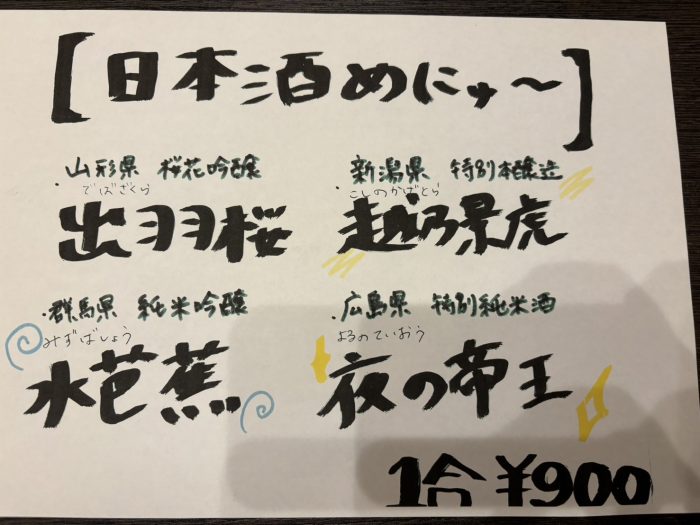 [日本酒めにゅ～]
・山形県 桜花吟醸
でばざくら
出羽桜
・新潟県 特別本醸造
こしのかげとら
越乃景虎
・群馬県 純米吟醸
みずばしょう
水芭蕉
・広島県 特別純米酒
よるのていおう
夜の帝王
1合 ¥900